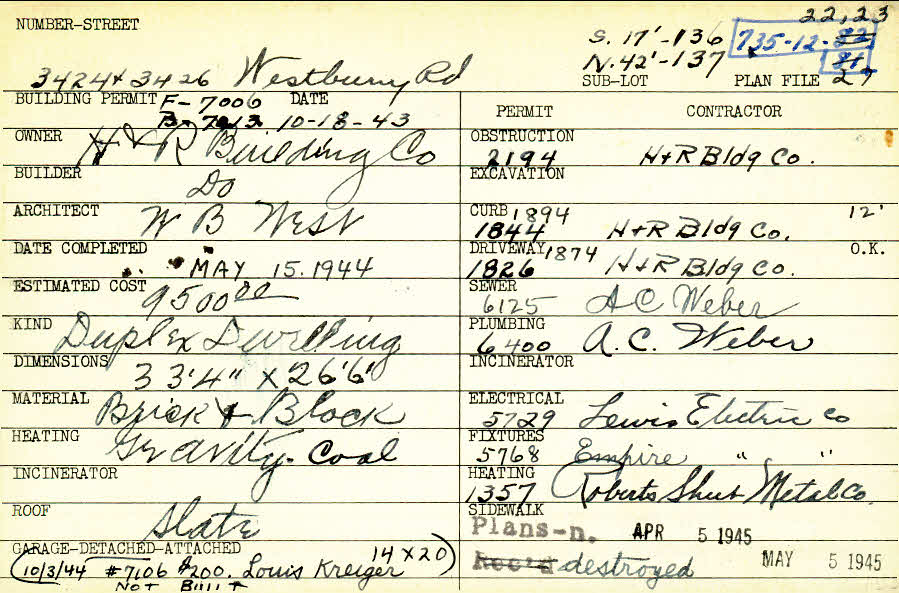 NUMBER-STREET
3424 + 3426 Westbury Rd
22,23
S. 17'-136
N. 42'-137
735-12-22
21
27
SUB-LOT PLAN FILE
BUILDING PERMIT F-7006 DATE
B-7013 10-18-43
OWNER H & R Building Co
BUILDER Do
ARCHITECT W B West
DATE COMPLETED MAY 15. 1944
ESTIMATED COST 9500 00
KIND Duplex Dwelling
DIMENSIONS 33'4" x 26'6'
MATERIAL Brick & Block
HEATING Gravity-Coal
INCINERATOR
ROOF Slate
GARAGE-DETACHED-ATTACHED 14 x 20
(10/3/44 #7106 $200. Louis Kreiger)
NOT BUILT
PERMIT CONTRACTOR
OBSTRUCTION
2194 H+R Bldg Co.
EXCAVATION
CURB 1894 12'
1844 H+R Bldg Co.
DRIVEWAY 1874 O.K.
1826 H+R Bldg Co.
SEWER
6125 A C Weber
PLUMBING
6400 A. C. Weber
INCINERATOR
ELECTRICAL
5729 Lewis Electric Co
FIXTURES
5768 Empire " "
HEATING
1357 Roberts Sheet Metal Co.
SIDEWALK
Plans-n. APR 5 1945
Rec'd destroyed MAY 5 1945